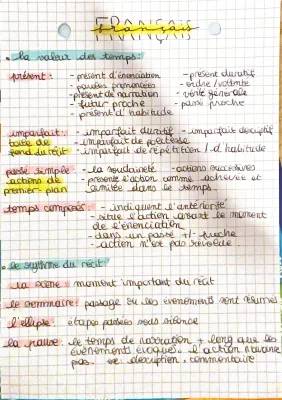 FRANÇAIS
• la valeur des temps:
présent: - présent d'énonciation - présent duratif
- paroles prononcées - ordre/volonté
- présent de narration - vérité générale
- futur proche - passé proche
- présent d'habitude
imparfait: - imparfait duratif - imparfait descriptif
- imparfait de politesse
fond du récit - imparfait de répétition / d'habitude
passé simple: - la soudaineté - actions successives
actions de - présente l'action comme achevée et
premier-plan limitée dans le temps
temps composés: - indiquent l'antériorité
- situe l'action avant le moment
de l'énonciation
- dans un passé +/- proche
- action n'est pas révolue
• le rythme du récit
la scène: moment important du récit
le sommaire: passage où les événements sont résumés
l'ellipse: étapes passées sous silence
la pause: le temps de narration + long que les
événements évoqués. l'action n'avance
pas. description, commentaire